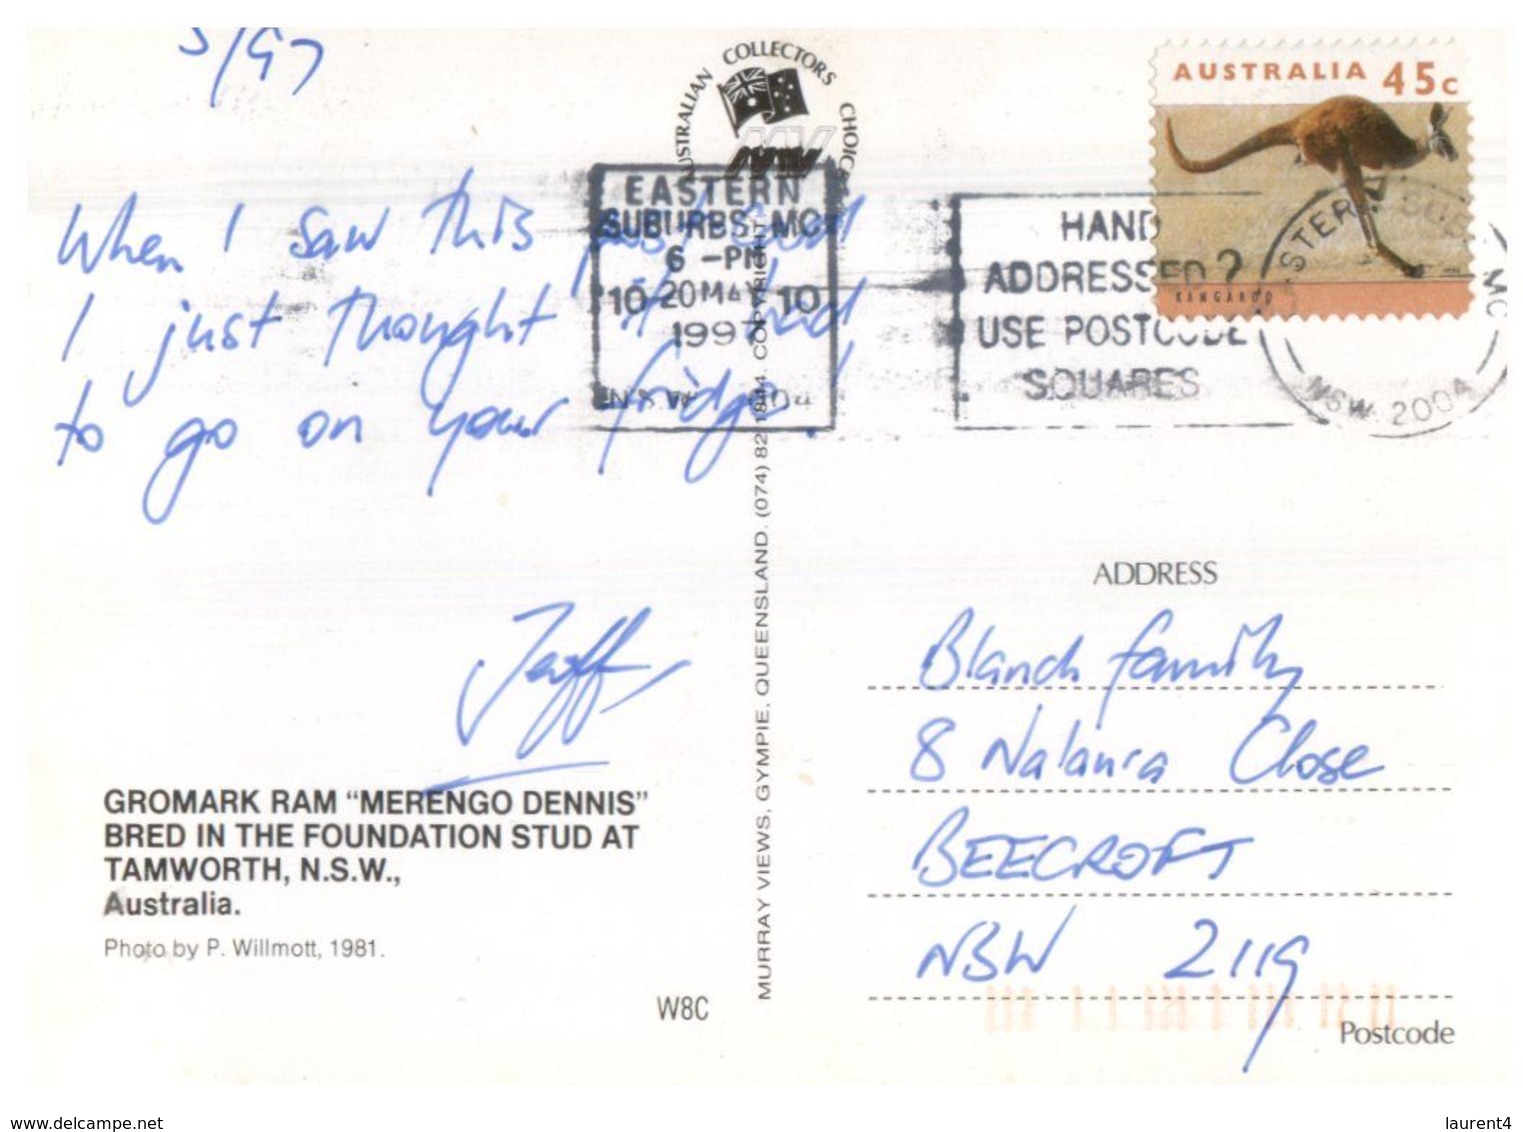 5/97
AUSTRALIAN COLLECTORS CHOICE
MV
AUSTRALIA 45c
KANGAROO
EASTERN
SUBURBS MC
6 -PM
10 20MAY 10
1997
N.S.W.
HAND
ADDRESSED?
USE POSTCODE
SQUARES
NSW 2004
When I saw this post card
I just thought it had
to go on your fridge!
Jeff
GROMARK RAM “MERENGO DENNIS”
BRED IN THE FOUNDATION STUD AT
TAMWORTH, N.S.W.,
Australia.
Photo by P. Willmott, 1981.
W8C
MURRAY VIEWS, GYMPIE, QUEENSLAND. (074) 82 1844. COPYRIGHT
ADDRESS
Blanch family
8 Nalanra Close
BEECROFT
NSW 2119
Postcode
www.delcampe.net
laurent4